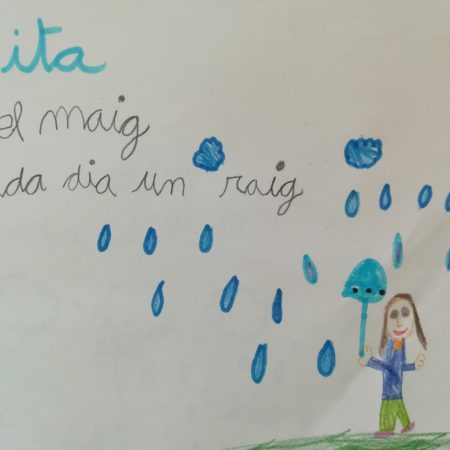 ita
el maig
da dia un raig